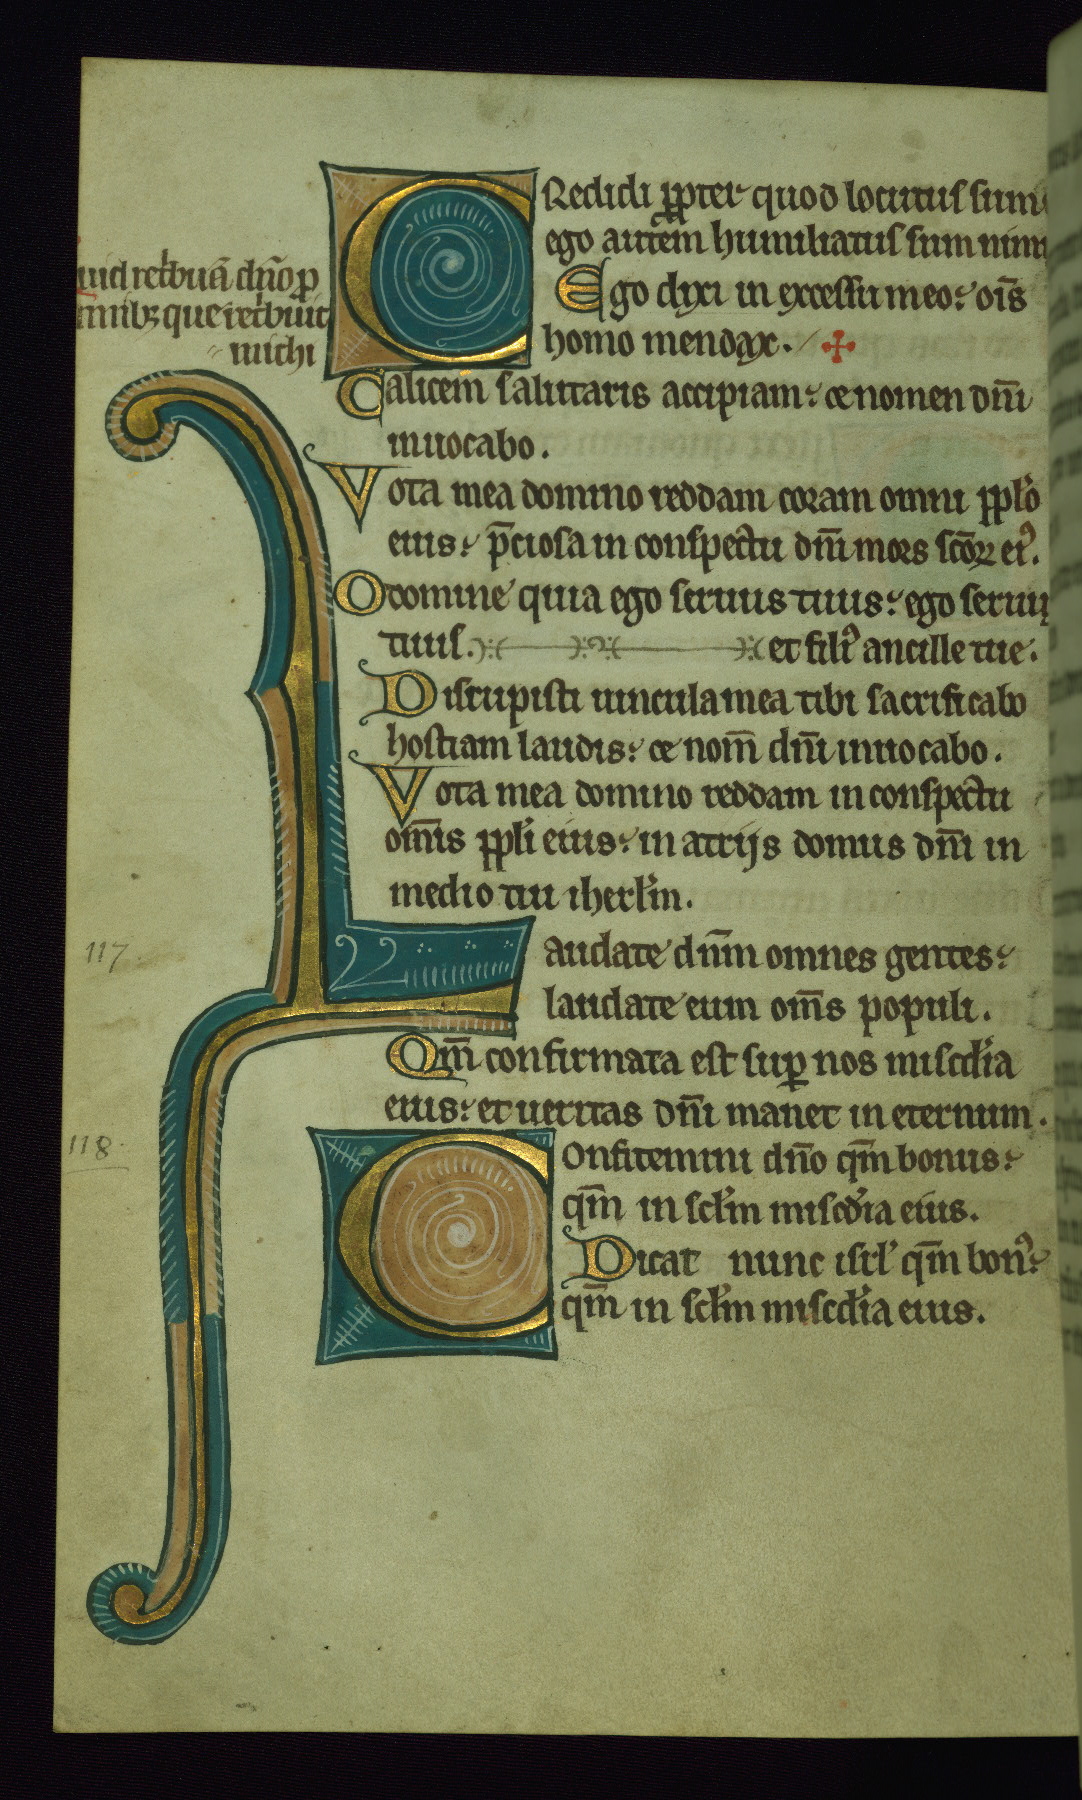 CRedidi ꝓpter quod locutus sum
ego autem humiliatus sum nim
Ego dixi in excessu meo: om̅s
homo mendax.
uid ret͛buā dn̄o ꝓ
mnibꝫ que ret͛buit
michi
Calicem salutaris accipiam: et nomen dn̄i
inuocabo.
Vota mea domino reddam coram omni ppl̓o
eius: p̄ciosa in conspectu dn̄i mors sc̄oꝝ ei᾽.
O domine quia ego seruus tuus: ego seruus
tuus. et fili᾽ ancille tue.
Disrupisti uincula mea tibi sacrificabo
hostiam laudis: et nom̄ dn̄i inuocabo.
Vota mea domino reddam in conspectu
om̄is ppl̓i eius: in atrijs domus dn̄i in
medio tui iherl̓m.
Laudate dn̄m omnes gentes:
laudate eum om̄s populi.
Qm̄ confirmata est suꝑ nos miscd̓ia
eius: et ueritas dn̄i manet in eternum.
Confitemini dn̄o qm̄ bonus:
qm̄ in scl̓m miscd̓ia eius.
Dicat nunc isrl̓ qm̄ bon᾽:
qm̄ in scl̓m miscd̓ia eius.
117.
118.